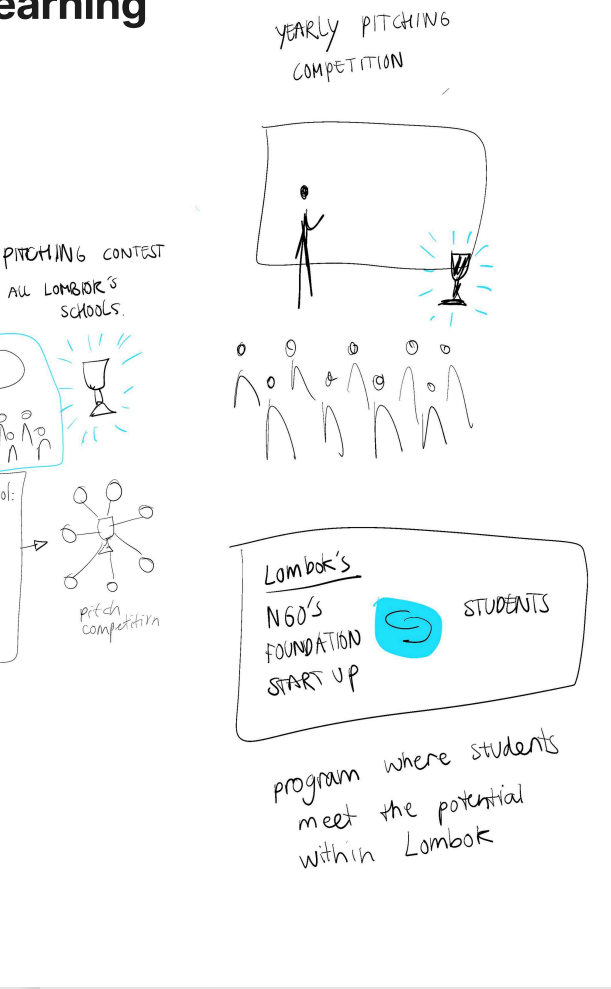 earning
YEARLY PITCHING
COMPETITION
PITCHING CONTEST
ALL LOMBOK'S
SCHOOLS.
ol:
pitch
competition
Lombok's
NGO'S
FOUNDATION
START UP
STUDENTS
program where students
meet the potential
within Lombok